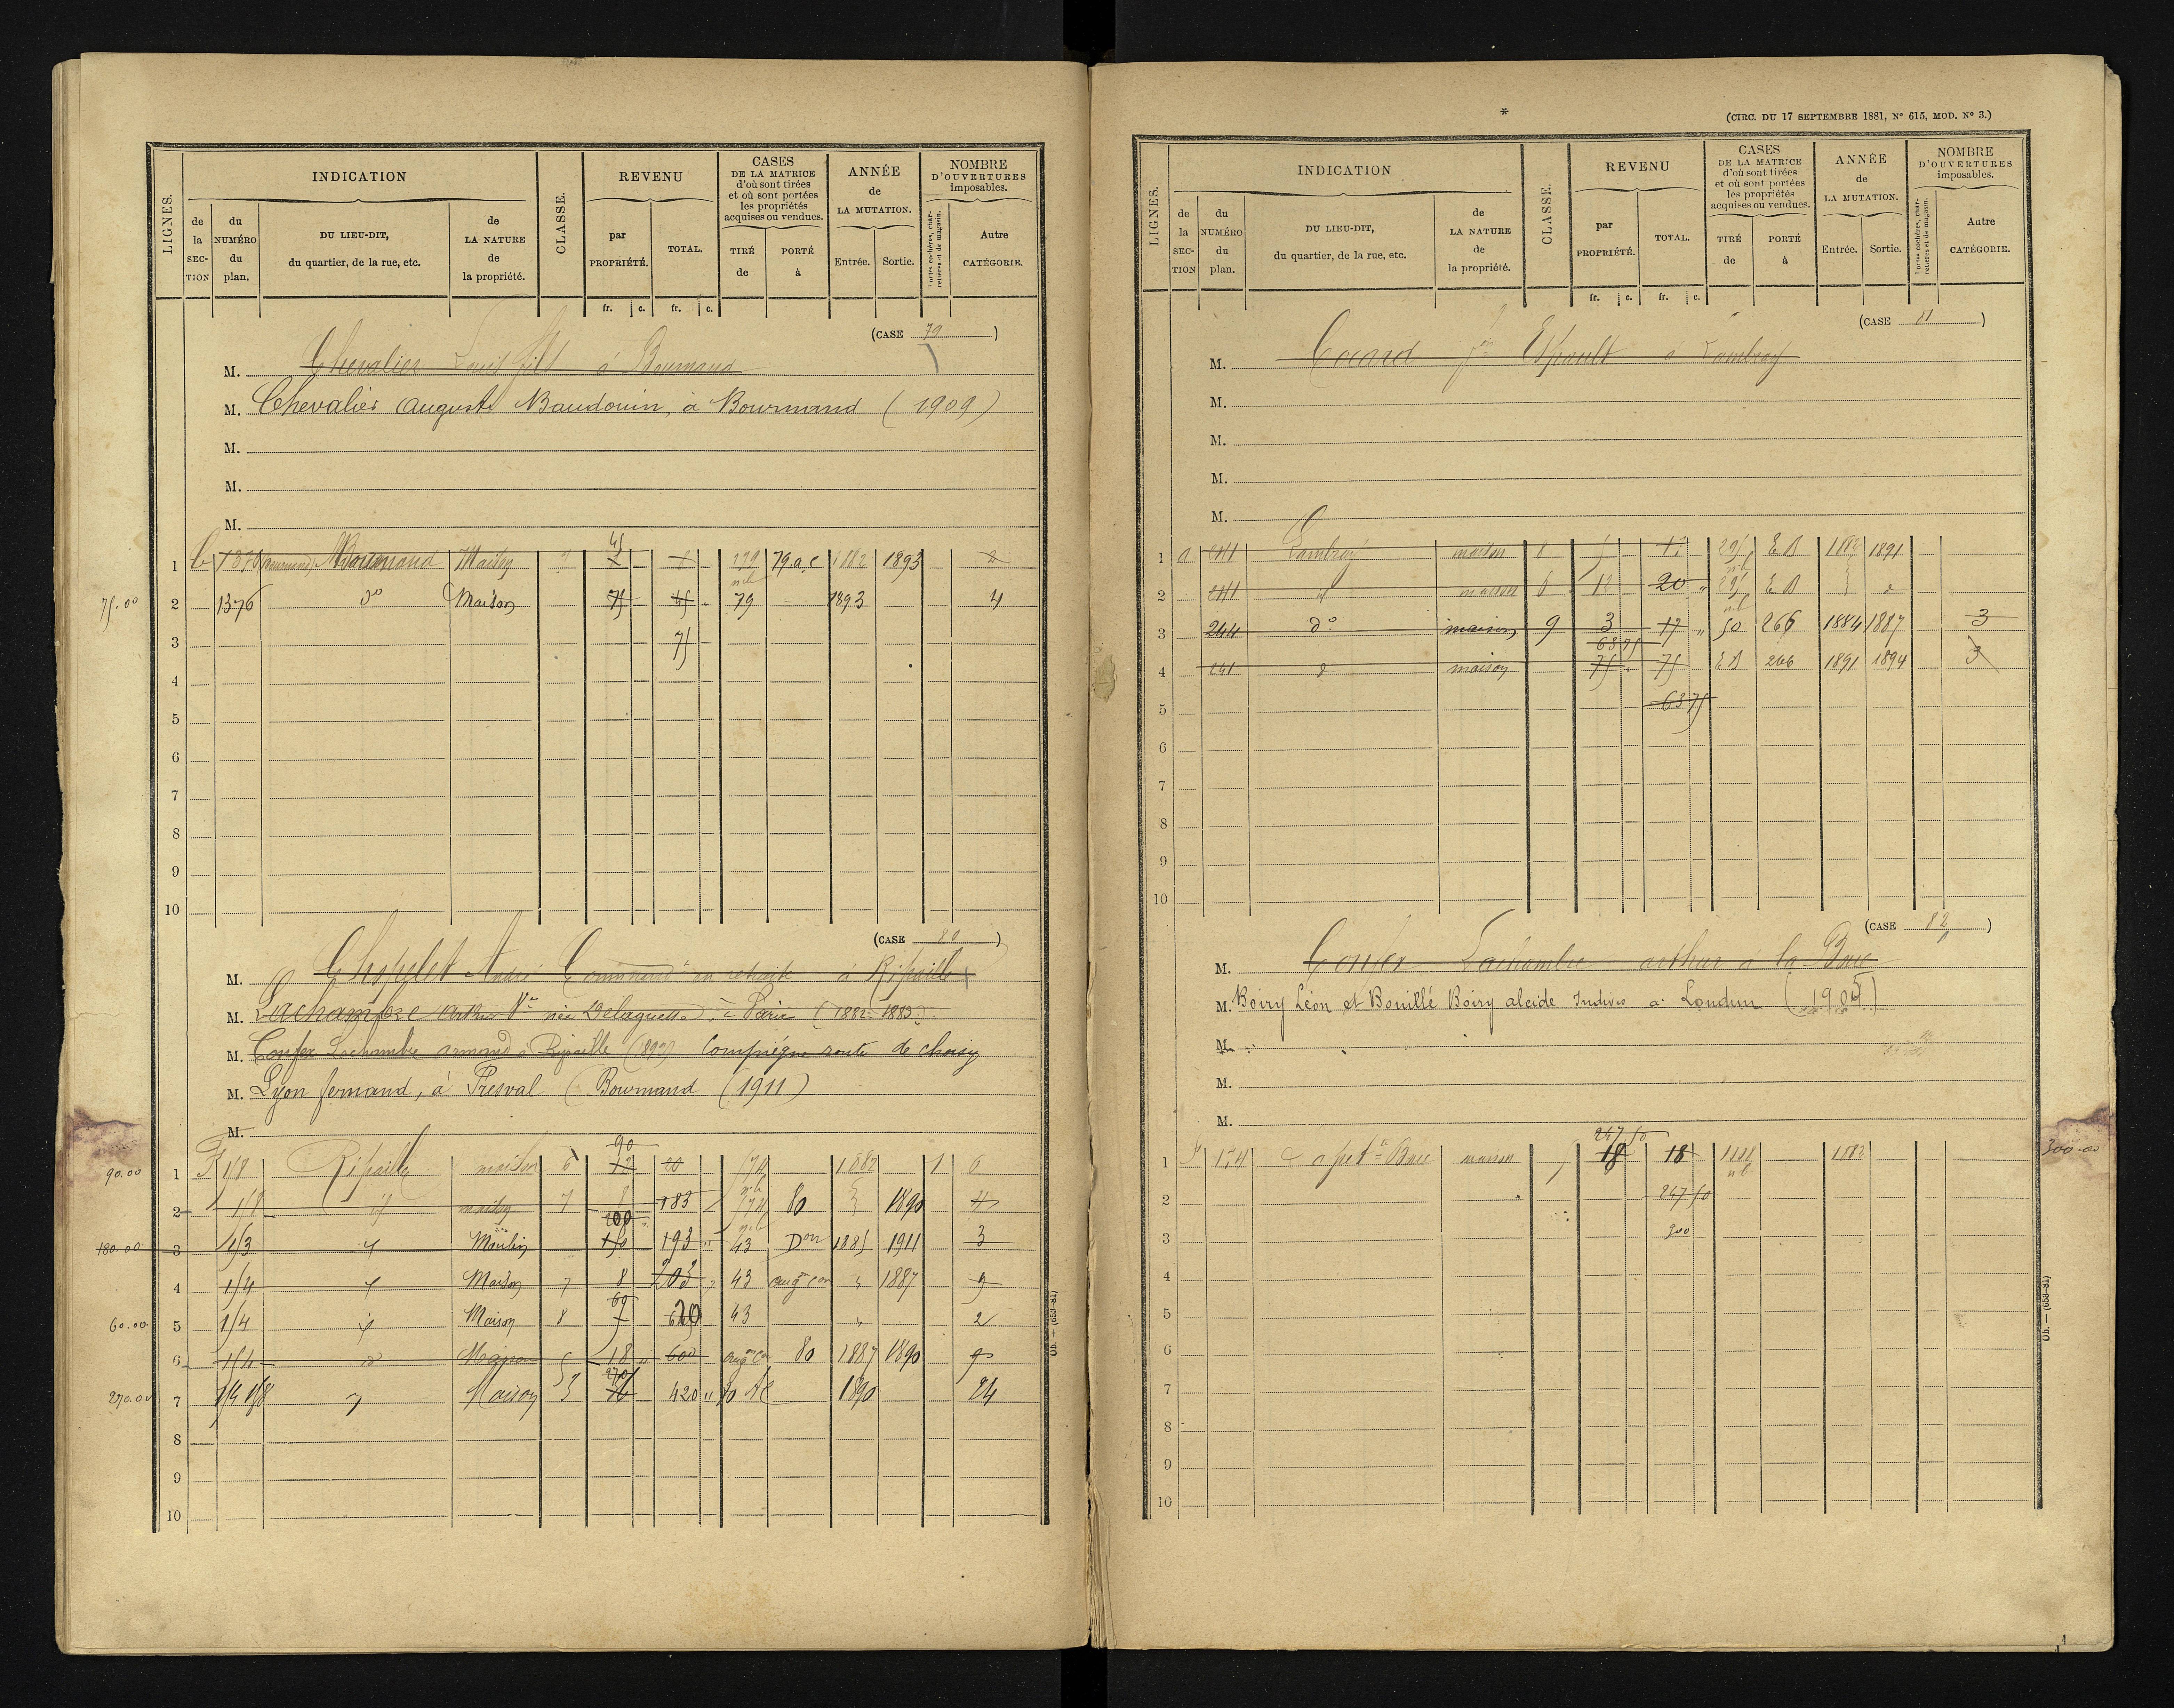 LIGNES.
INDICATION
de la SECTION
du NUMÉRO du plan.
DU LIEU-DIT, du quartier, de la rue, etc.
de LA NATURE de la propriété.
CLASSE.
REVENU
par PROPRIÉTÉ.
TOTAL.
CASES DE LA MATRICE d'où sont tirées et où sont portées les propriétés acquises ou vendues.
TIRÉ de
PORTÉ à
ANNÉE de LA MUTATION.
Entrée.
Sortie.
NOMBRE D'OUVERTURES imposables.
Portes cochères, charretières et de magasin.
Autre CATÉGORIE.
fr. c. fr. c.
(CASE 79)
M. Chevalier Louis fils à Bournand
M. Chevalier Auguste Baudouin, à Bournand (1909)
M.
M.
M.
1 C 1376 Bournand Maison 79.a.c 1882 1893 2
75.00 2 1376 do Maison 75 45 79 1893 4
3 75
4
5
6
7
8
9
10
(CASE 80)
M. André en retraite à Ripaille
M. Lachambre Arthur Vve née Delaquelle, à Paris (1882-1883)
M. Confex Lachambre armand à Ripaille Compiègne route de choisy
M. Lyon fernand, à Presval (Bournand (1911)
M.
90
90.00 1 F 118 Ripaille maison 6 12 20 174 1882 1 6
2 118 d maison 7 8 183 174 80 1890 4
200
180.00 3 113 Moulin 150 193 43 Don 1885 1911 3
4 114 Maison 7 8 203 43 augon con 1887 9
60
60.00 5 114 Maison 8 43 2
6 114 d Maison 5 18 600 80 1887 1890 9
270
270.00 7 114 118 Maison 3 420 80 AC 1890 24
8
9
10
Ob. — (653-81)
*
(CIRC. DU 17 SEPTEMBRE 1881, N° 615, MOD. N° 3.)
LIGNES.
INDICATION
de la SECTION
du NUMÉRO du plan.
DU LIEU-DIT, du quartier, de la rue, etc.
de LA NATURE de la propriété.
CLASSE.
REVENU
par PROPRIÉTÉ.
TOTAL.
CASES DE LA MATRICE d'où sont tirées et où sont portées les propriétés acquises ou vendues.
TIRÉ de
PORTÉ à
ANNÉE de LA MUTATION.
Entrée.
Sortie.
NOMBRE D'OUVERTURES imposables.
Portes cochères, charretières et de magasin.
Autre CATÉGORIE.
fr. c. fr. c.
(CASE 81)
M. Cocard à Lambray
M.
M.
M.
M.
1 a 241 Lambray maison 8 5 295 E B 1882 1891
2 241 d maison 8 12 20 295 E B
3 244 do maison 9 3 17 50 266 1884 1887 3
63 75
4 241 d maison 75 75 E B 266 1891 1894 3
5 63 75
6
7
8
9
10
(CASE 82)
M. Confex Lachambre arthur à la Brie
M. Boiry Léon et Bouillé Boiry alcide Indivis a Loudun (1905)
M.
M.
M.
247 50
1 F 174 maison 18 18 1882 300.00
2 247 50
3 300
4
5
6
7
8
9
10
Ob. — (653-81)